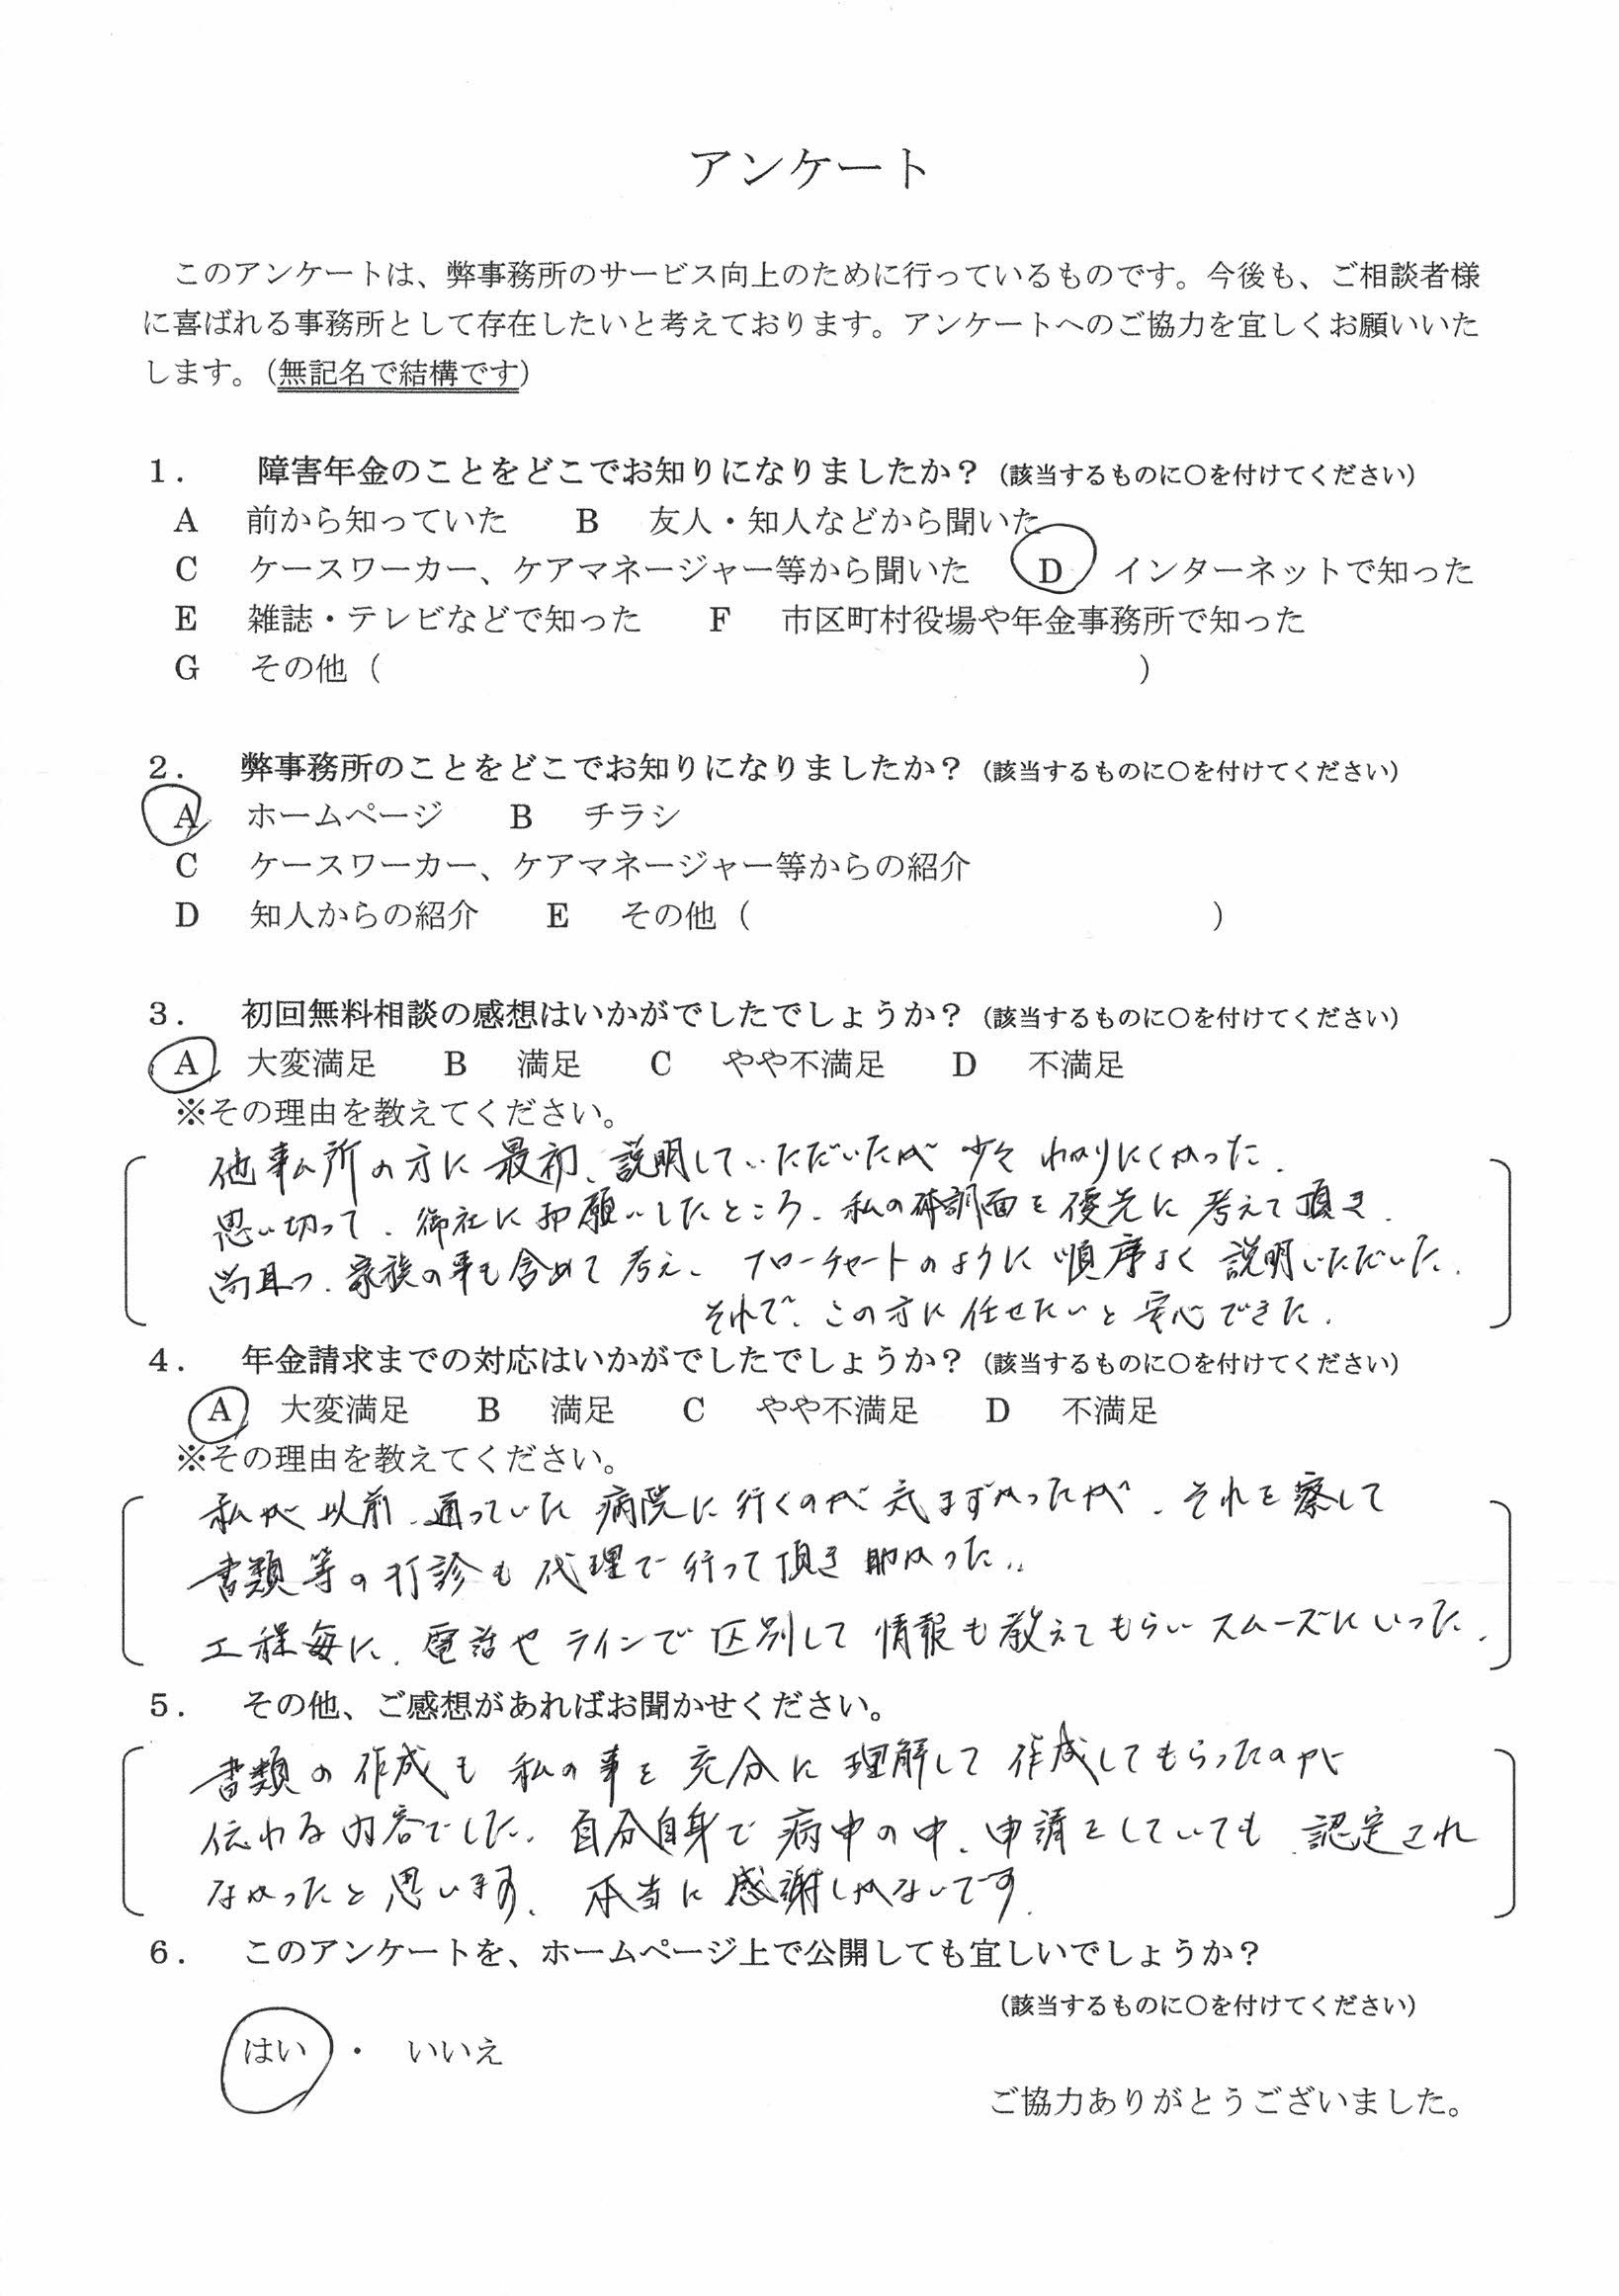 アンケート
このアンケートは、弊事務所のサービス向上のために行っているものです。今後も、ご相談者様
に喜ばれる事務所として存在したいと考えております。アンケートへのご協力を宜しくお願いいた
します。（無記名で結構です）
１．　障害年金のことをどこでお知りになりましたか？（該当するものに○を付けてください）
A　前から知っていた　B　友人・知人などから聞いた
C　ケースワーカー、ケアマネージャー等から聞いた　D　インターネットで知った
E　雑誌・テレビなどで知った　F　市区町村役場や年金事務所で知った
G　その他（　　　）
２．　弊事務所のことをどこでお知りになりましたか？（該当するものに○を付けてください）
A　ホームページ　B　チラシ
C　ケースワーカー、ケアマネージャー等からの紹介
D　知人からの紹介　E　その他（　　　）
３．　初回無料相談の感想はいかがでしたでしょうか？（該当するものに○を付けてください）
A　大変満足　B　満足　C　やや不満足　D　不満足
※その理由を教えてください。
他事ム所の方に最初、説明していただいたが少々わかりにくかった。
思い切って、御社にお願いしたところ、私の体調面を優先に考えて頂き、
尚且つ、家族の事も含めて考え、フローチャートのように順序よく説明いただいた。
それで、この方に任せたいと安心できた。
４．　年金請求までの対応はいかがでしたでしょうか？（該当するものに○を付けてください）
A　大変満足　B　満足　C　やや不満足　D　不満足
※その理由を教えてください。
私が以前、通っていた病院に行くのが気まずかったが、それを察して
書類等の打診も代理で行って頂き助かった。
工程毎に、電話やラインで区別して情報も教えてもらいスムーズにいった。
５．　その他、ご感想があればお聞かせください。
書類の作成も私の事を充分に理解して作成してもらったのが
伝わる内容でした。自分自身で病中の中、申請をしていても、認定され
なかったと思います。本当に感謝しかないです。
６．　このアンケートを、ホームページ上で公開しても宜しいでしょうか？
（該当するものに○を付けてください）
はい　・　いいえ
ご協力ありがとうございました。